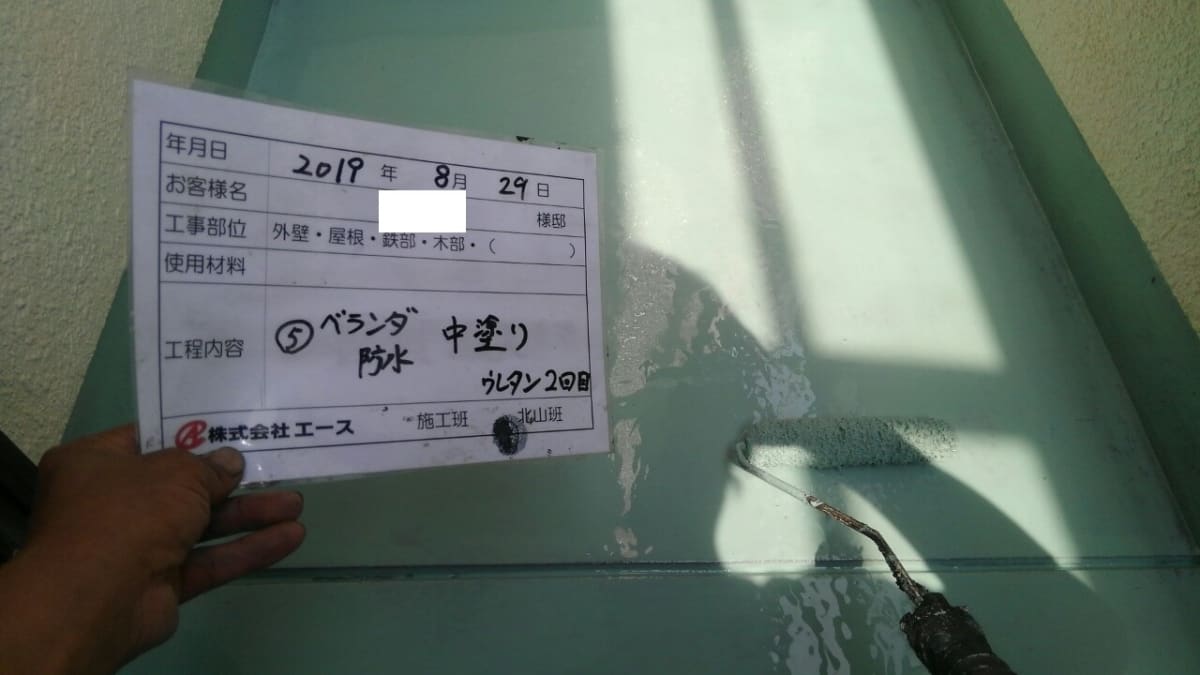 年月日 2019年 8月 29日
お客様名 様邸
工事部位 外壁・屋根・鉄部・木部・（ ）
使用材料
工程内容 ⑤ベランダ 中塗り
防水
ウレタン2回目
株式会社エース 施工班 北山班